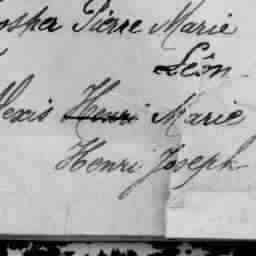 Pierre Marie
Léon
Alexis Henri Marie
Henri Joseph